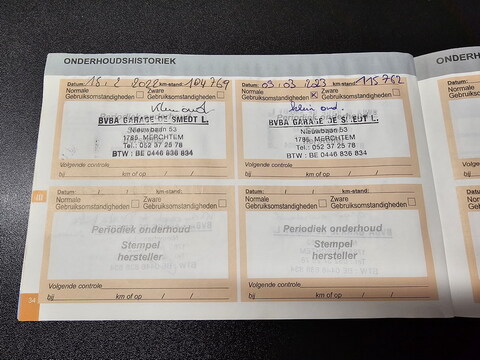 ONDERHOUDSHISTORIEK
ONDERH
Datum: 18 / 2 2022 km-stand: 104769
Normale Gebruiksomstandigheden
Zware Gebruiksomstandigheden
BVBA GARAGE DE SMEDT L.
Nieuwbaan 53
1785 MERCHTEM
Tel.: 052 37 25 78
BTW : BE 0446 836 834
Volgende controle
bij km of op / /
Datum: 03 / 03 / 2023 km-stand: 115762
Normale Gebruiksomstandigheden
Zware Gebruiksomstandigheden
klein ond.
BVBA GARAGE DE SMEDT L.
Nieuwbaan 53
1785 MERCHTEM
Tel.: 052 37 25 78
BTW : BE 0446 836 834
Volgende controle
bij km of op / /
Datum: / / km-stand:
Normale Gebruiksomstandigheden
Zware Gebruiksomstandigheden
Periodiek onderhoud
Stempel
hersteller
Volgende controle
bij km of op / /
Datum: / / km-stand:
Normale Gebruiksomstandigheden
Zware Gebruiksomstandigheden
Periodiek onderhoud
Stempel
hersteller
Volgende controle
bij km of op / /
34